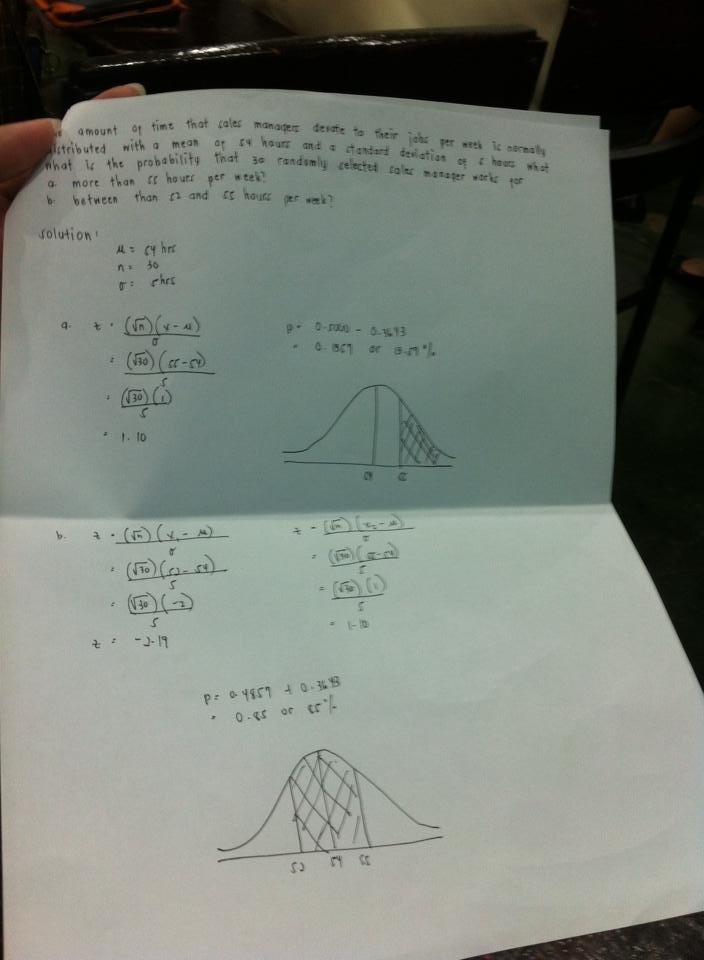 amount of time that sales managers devote to their jobs per week is normally
distributed with a mean of 54 hours and a standard deviation of 5 hours what
what is the probability that 30 randomly selected sales manager works for
a. more than 55 hours per week?
b. between than 52 and 55 hours per week?
solution:
μ = 54 hrs
n = 30
σ = 5hrs
a. z = (√n)(x - μ) / σ
= (√30)(55-54) / 5
= (√30)(1) / 5
= 1.10
p = 0.5000 - 0.3643
= 0.1357 or 13.57%
54 55
b. z = (√n)(x₁ - μ) / σ
= (√30)(52 - 54) / 5
= (√30)(-2) / 5
z = -2.19
z = (√n)(x₂ - μ) / σ
= (√30)(55-54) / 5
= (√30)(1) / 5
= 1.10
p = 0.4857 + 0.3643
= 0.85 or 85%
52 54 55